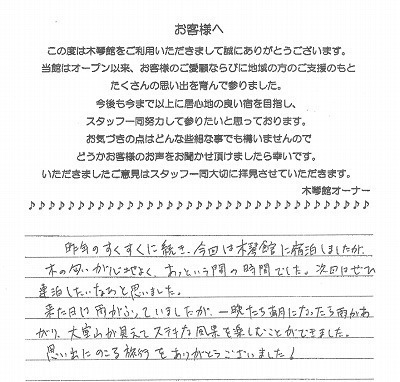 お客様へ
この度は木琴館をご利用いただきまして誠にありがとうございます。
当館はオープン以来、お客様のご愛顧ならびに地域の方のご支援のもと
たくさんの思い出を育んで参りました。
今後も今まで以上に居心地の良い宿を目指し、
スタッフ一同努力して参りたいと思っております。
お気づきの点はどんな些細な事でも構いませんので
どうかお客様のお声をお聞かせ頂けましたら幸いです。
いただきましたご意見はスタッフ一同大切に拝見させていただきます。
木琴館オーナー
♪♪♪♪♪♪♪♪♪♪♪♪♪♪♪♪♪♪♪♪♪♪♪♪♪♪♪♪♪♪
昨年のすくすくに続き、今回は木琴館に宿泊しましたが、
木の匂いが心地よく、あっという間の時間でした。次回はぜひ
連泊したいなあと思いました。
来た日は雨がふっていましたが、一晩たち朝になったら雨があ
がり、大室山が見えてステキな風景を楽しむことができました。
思い出にのこる旅行をありがとうございました!